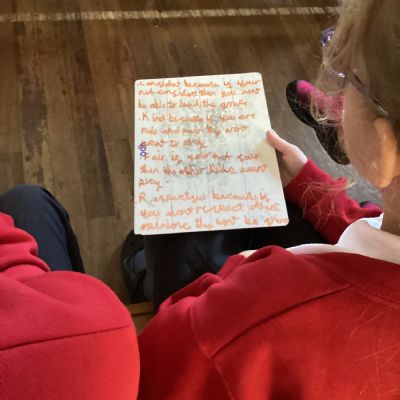 . Confident because if your
not confident then you wont
be able to lead the group
. Kind because if you are
rude and mean they wont
want to play
Fair if your not fair
then the other kids wont
play.
. Respectful because if
you dont respect others
opinions they wont be